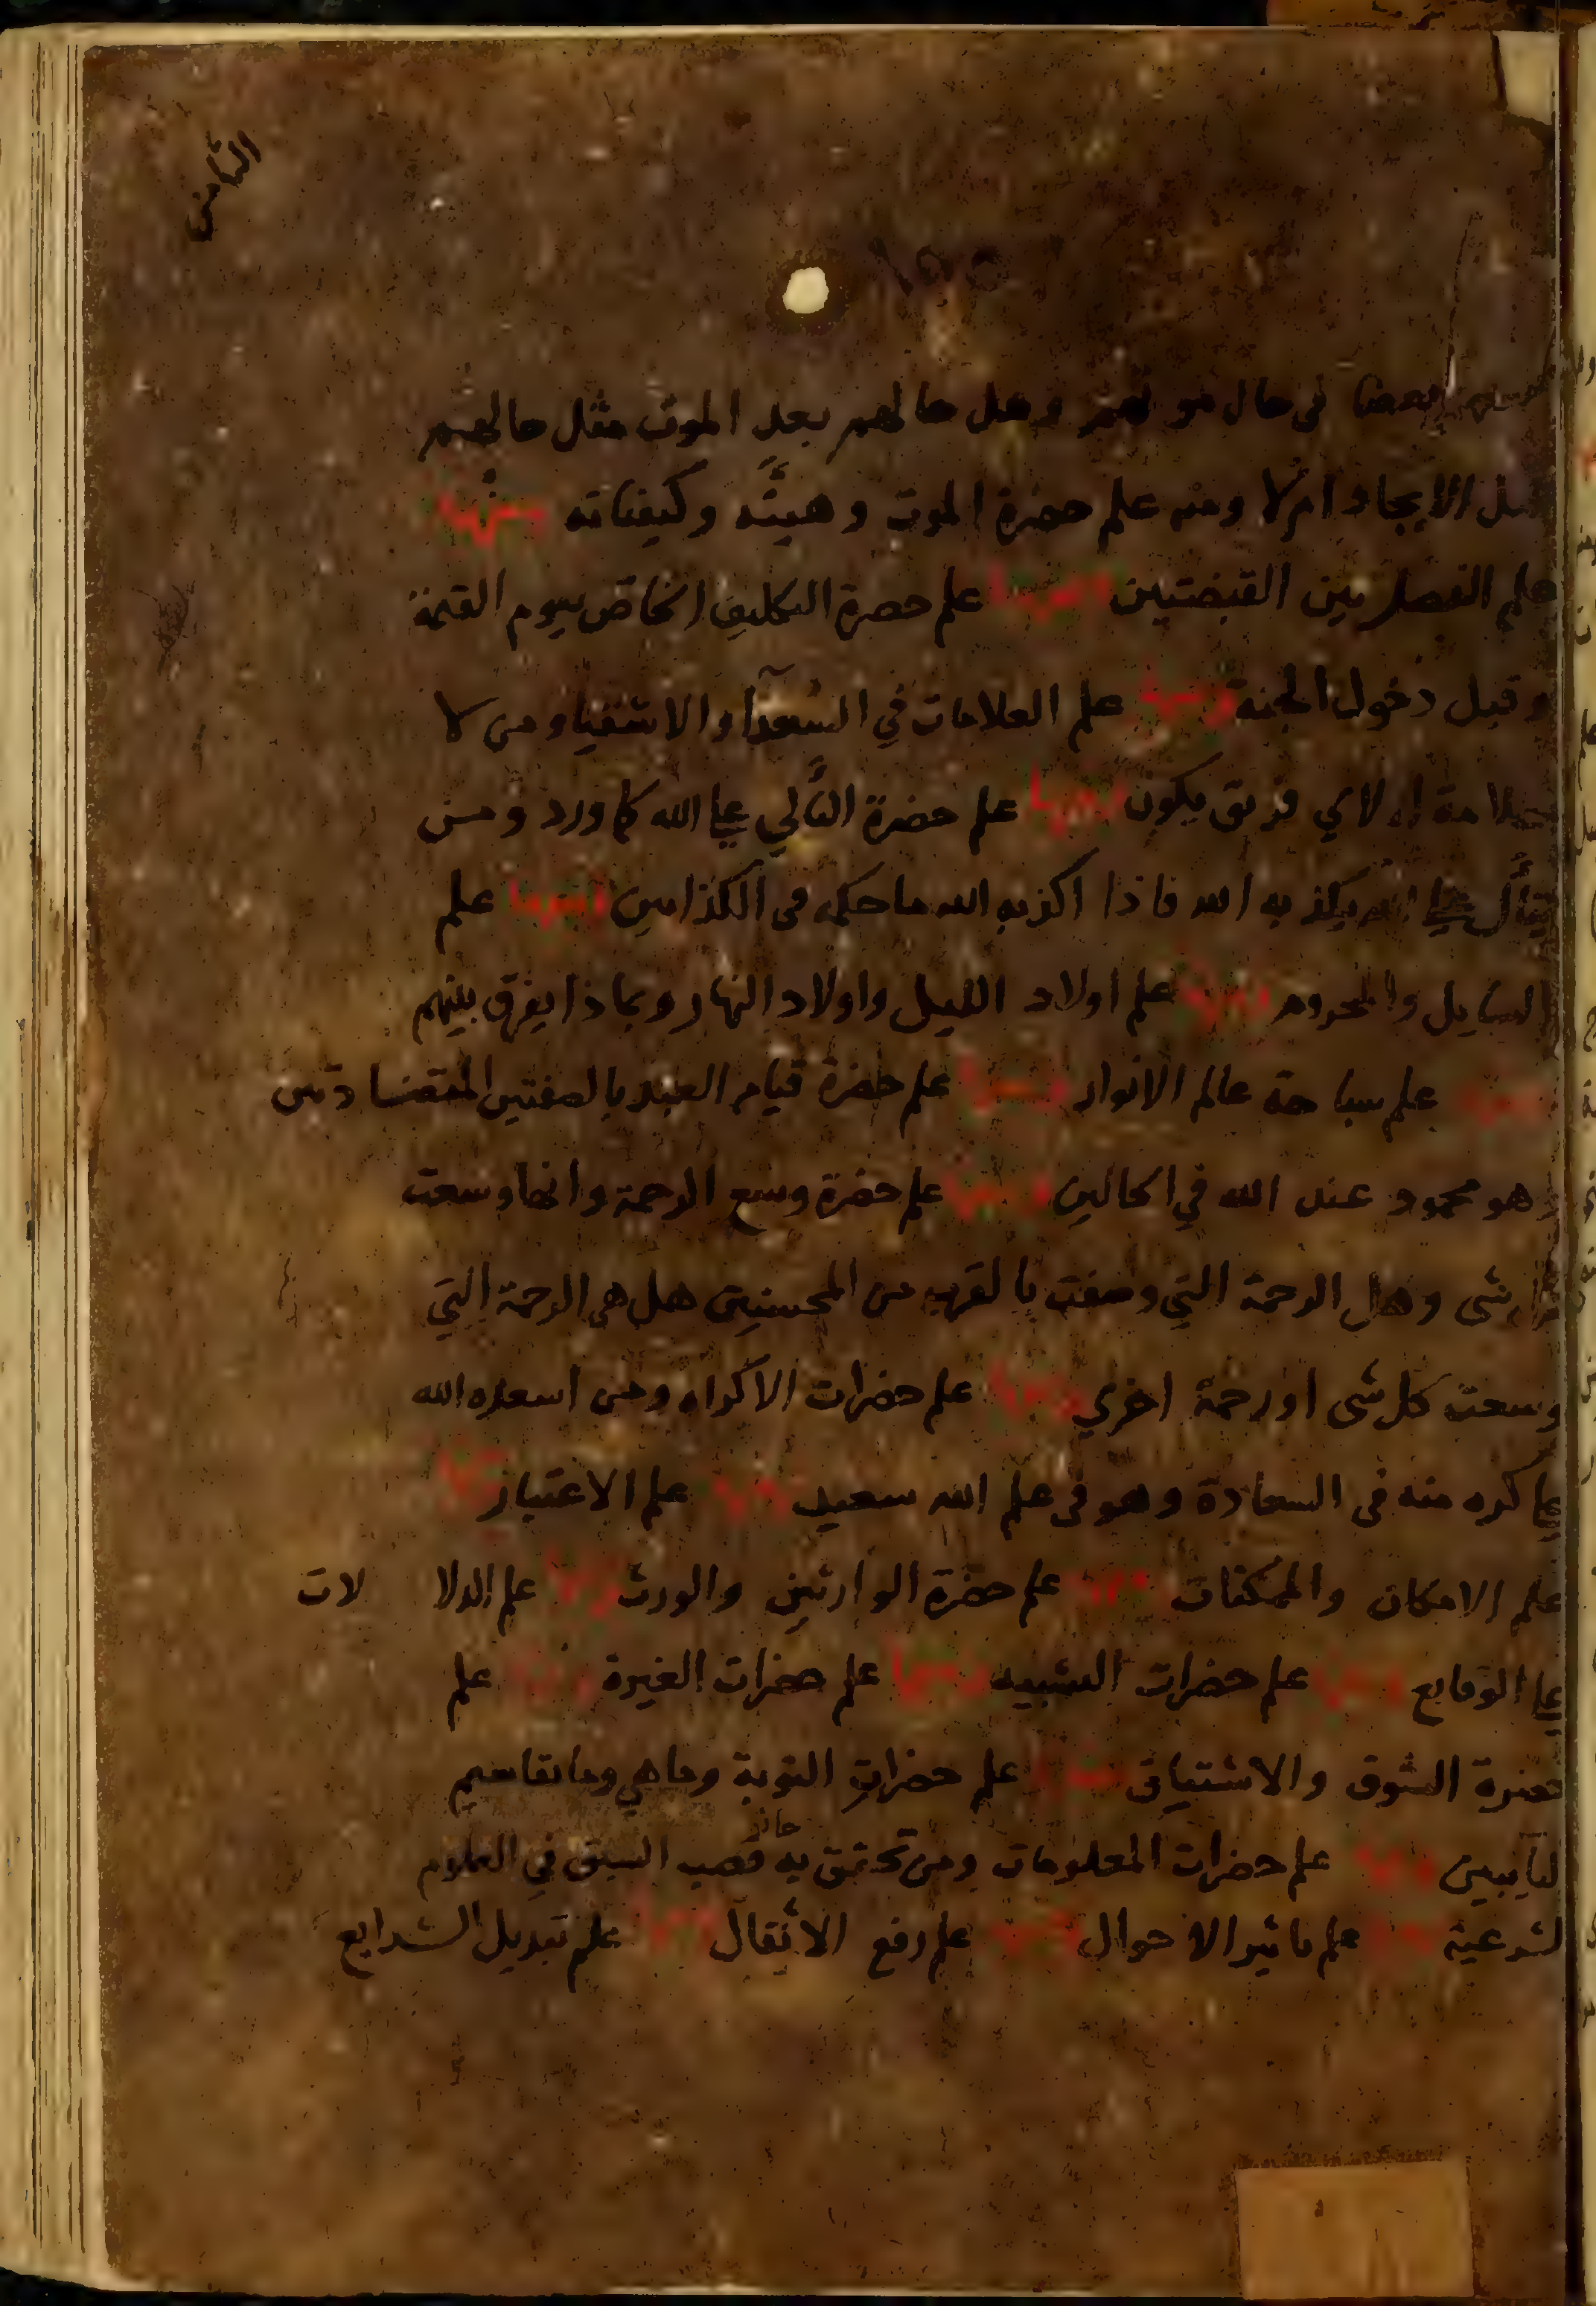 الثامن
بعضهم بعضا في حال موتهم وهل حالهم بعد الموت مثل حالهم
قبل الايجاد ام لا ومنه علم حضرة الموت وهيئته وكيفياته ومنها
علم الفصل بين القبضتين ومنها علم حضرة التكليف الخاص بيوم القيمة
وقبل دخول الجنة ومنها علم العلامات في السعداء والاشقياء ومن لا
علامة له لاي فريق يكون ومنها علم حضرة التألي على الله كما ورد ومن
يتأل على الله يكذبه الله فاذا اكذبه الله ما حكمه في الكذابين ومنها علم
السايل والمحروم ومنها علم اولاد الليل واولاد النهار وبماذا يفرق بينهم
ومنها علم سباحة عالم الانوار ومنها علم حضرة قيام العبد بالصفتين المتضادتين
وهو محمود عند الله في الحالين ومنها علم حضرة وسع الرحمة وانها وسعت
كل شى وهل الرحمة التي وصفت بالقرب من المحسنين هل هي الرحمة التي
وسعت كل شى او رحمة اخري ومنها علم حضرات الاكراه ومن اسعده الله
على كره منه في السعادة وهو في علم الله سعيد ومنها علم الاعتبار ومنها
علم الامكان والممكنات ومنها علم حضرة الوارثين والورث ومنها علم الدلا لات
على الوقايع ومنها علم حضرات التشبيه ومنها علم حضرات الغيرة ومنها علم
حضرة الشوق والاشتياق ومنها علم حضرات التوبة وما هي وما تقاسيم
التآيبين ومنها علم حضرات المعلومات ومن تحقق به حاز قصب السبق في العلوم
الشرعية ومنها علم تاثير الاحوال ومنها علم رفع الاثقال ومنها علم تبديل الشرايع